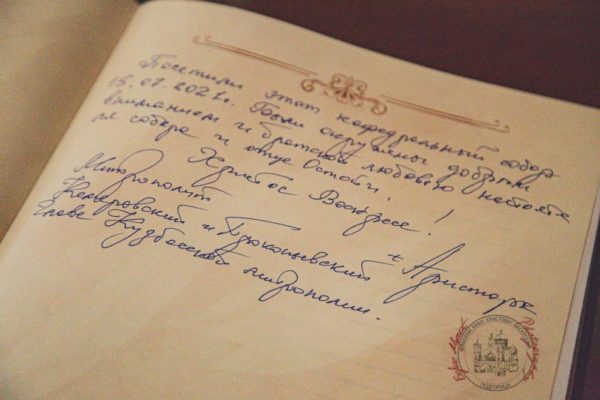 Посетили этот кафедральный собор
15.07.2021г. Были окружены добрым
вниманием и братской любовью настояте
ля собора и отце
Христос Воскресе!
Митрополит + Аристарх
Кемеровский и Прокопьевский
Глава Кузбасской митрополии.
ПОДГОРИЦА